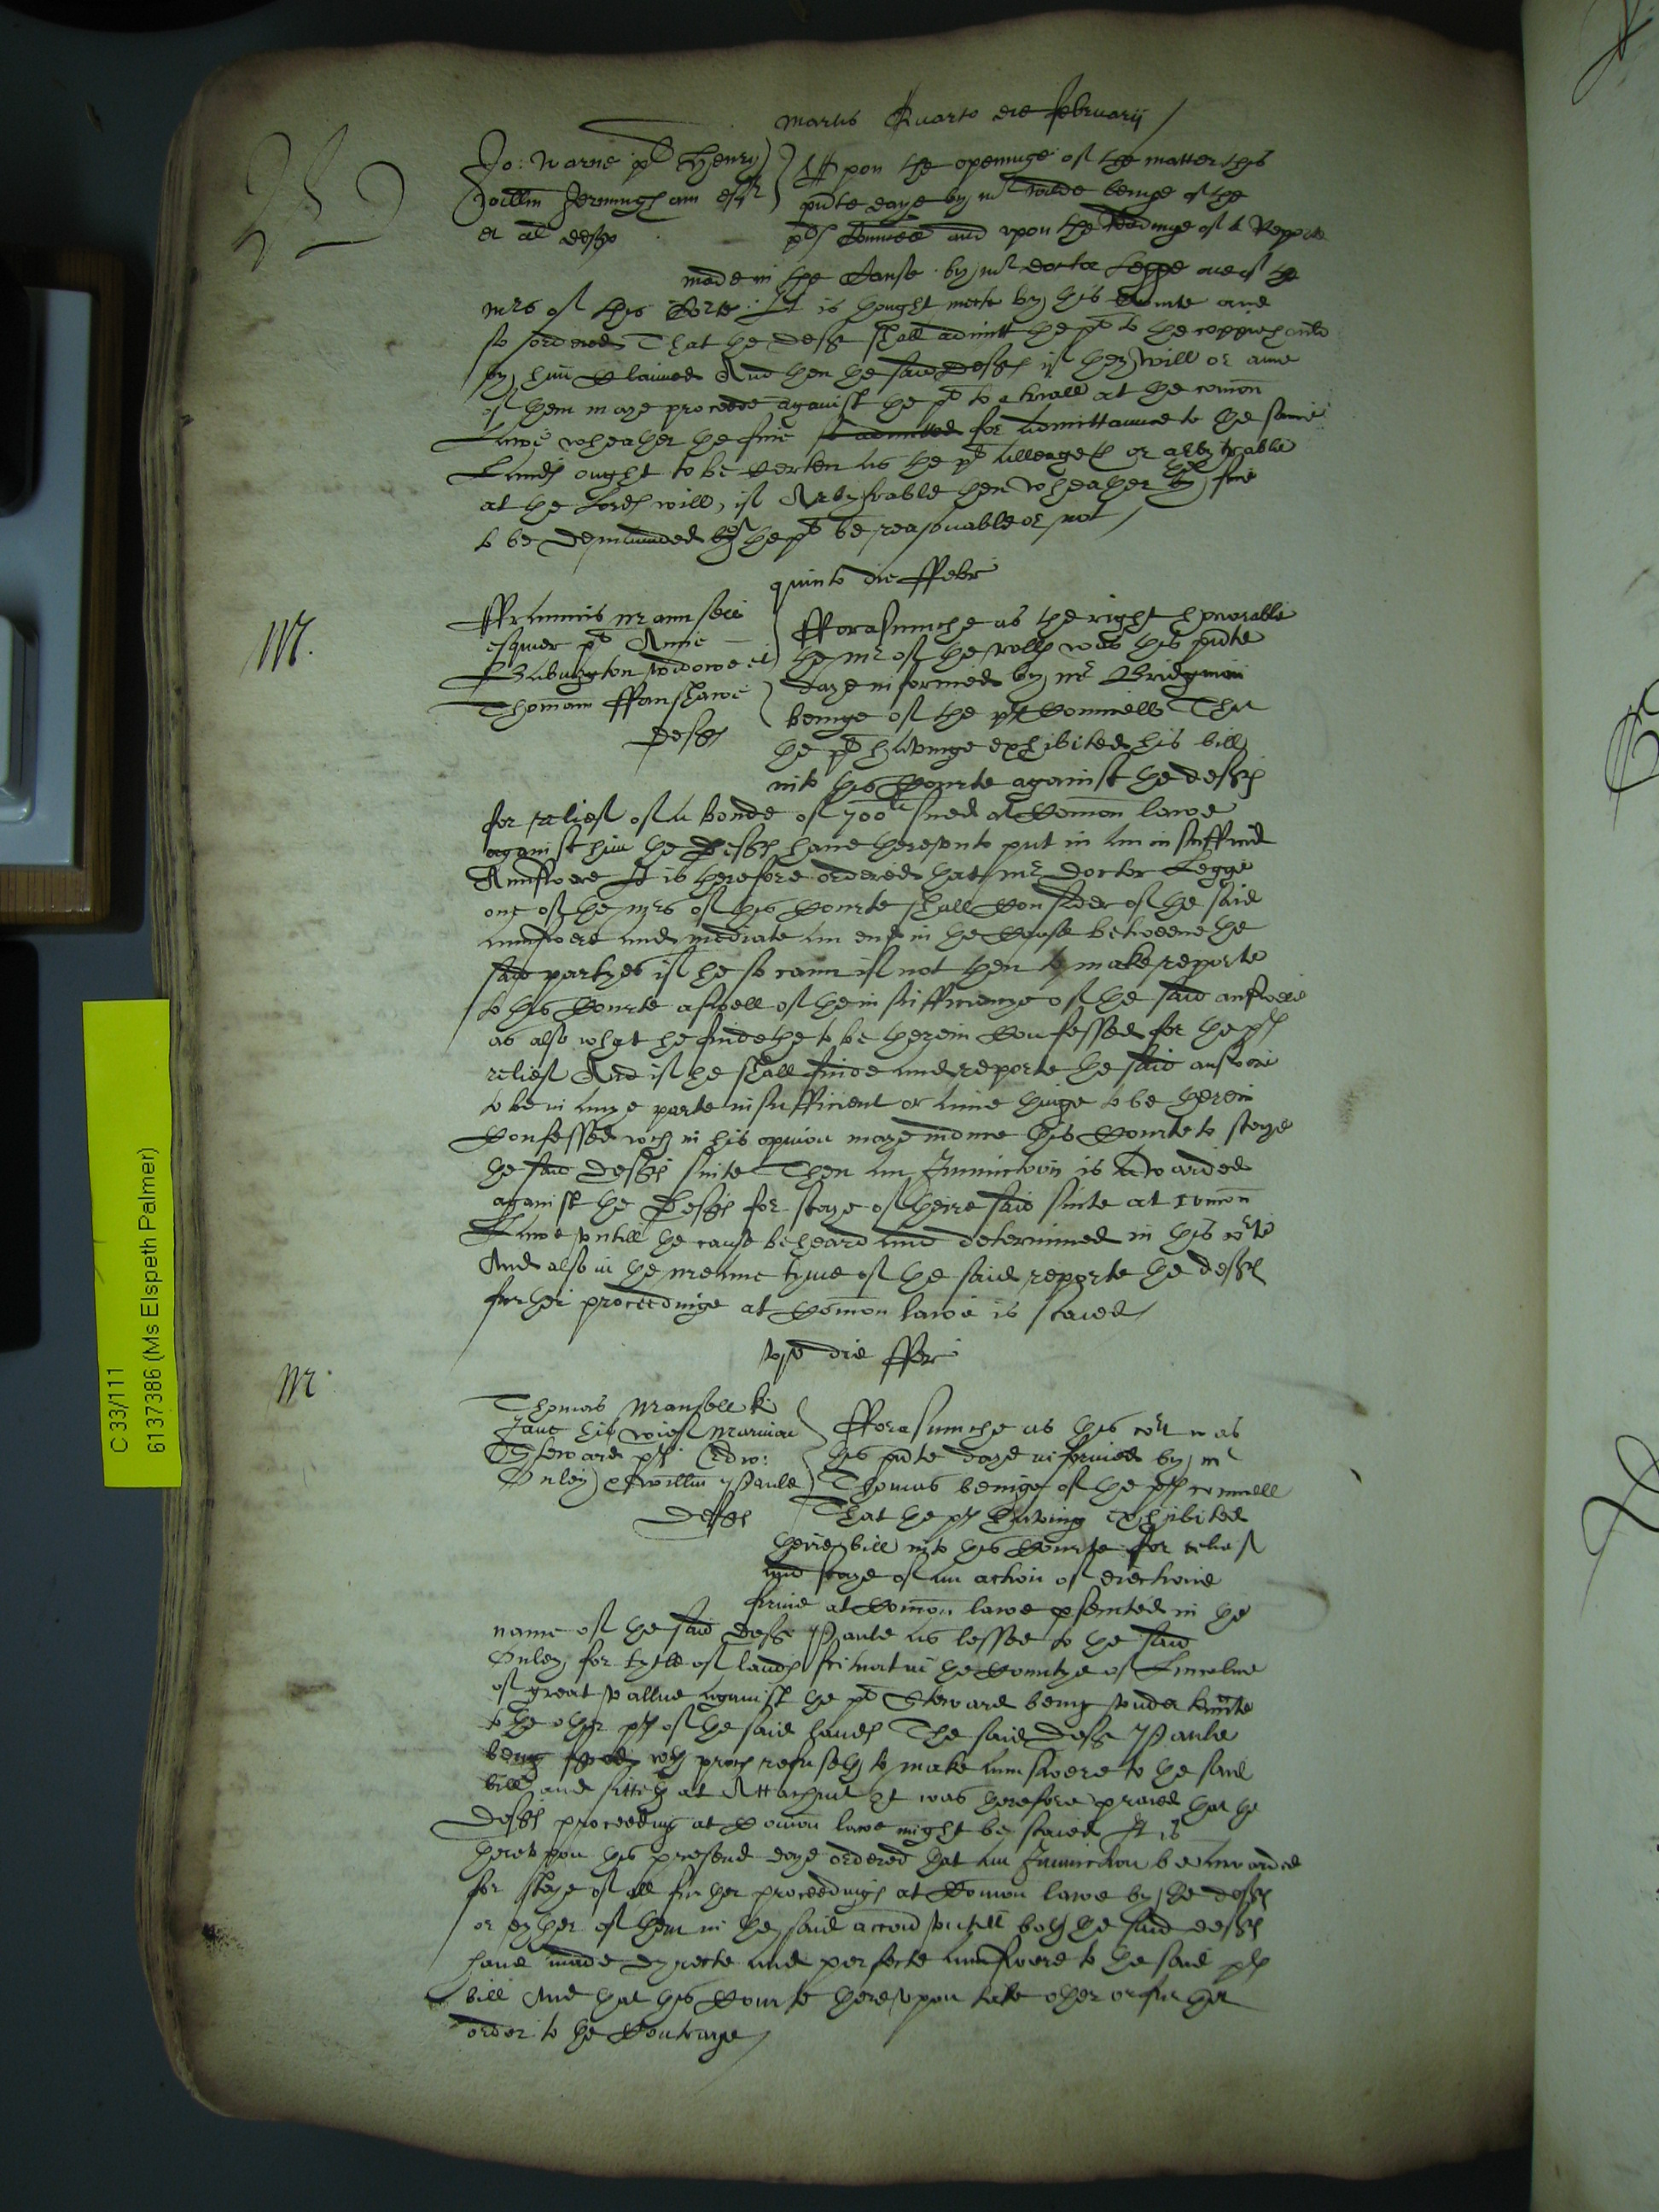 Martis Quarto die Februarij
W
Jo: Warne pl Henry
Willm Jerningham esqr
et al defts
Upon the openinge of the matter this
pnte daye by mr Wilde beinge of the
pls Councell and upon the readinge of a Reporte
made in the Cause by mr doctor Legge one of the
mrs of this Corte It is thought meete by this Courte and
so ordered That the deft shall admitt the pl to the coppiehould
by him Claimed And then the said defts if they will or anie
of them maye proceede against the pl to a triall at the comon
Lawe wheather the fine so admitted for Admittaunce to the same
Lands ought to be certen as the pl alleageth or arbytrable
at the Lords will, if Arbytrable then wheather the fine
to be demaunded by of the pl be reasonable or not
quinto die Ffebr
M.
Ffrauncis Maunsell
esquier pl Anne
Babington widowe et
Thomam Ffanshawe
defts
Fforasmuche as the right honorable
the mr of the rolls was this pnte
daye informed by mr Bridgman
beinge of the pls Councell That
the pl havinge exhibited his bill
into this Courte against the defts
for relief of a bonde of 700li sued at Comon lawe
against him the Defts have thereunto put in an insufficient
Aunswere It is therefore ordered that mr Doctor Legge
one of the mrs of this Courte shall Consider of the said
aunswere and mediate an end in the Cause betweene the
said partyes if he so cann if not then to make reporte
to this Courte aswell of the insufficiencye of the said answere
as also what he findethe to be therein Confessed for the pls
relief And if he shall finde and reporte the said answere
to be in anye parte insufficient or anie thinge to be therein
Confessed wch in his opinion maye induce this Courte to staye
the said defts suite Then an Iniunction is awarded
against the Defts for staye of theire said suite at comon
Lawe untill the cause be heard and determined in this corte
And also in the meane tyme of the said reporte the defts
further proceedinge at Comon lawe is staied
eod die Ffebr
M.
Thomas Mansell k
Jane his wief
Steward pls Edw:
Onley et Willm Paule
Defts
Fforasmuche as this cort was
this pnte daye informed by mr
Thomas beinge of the pls councell
That the pls having exhibited
theire bill into this Courte for relief
and staye of an action of eiectione
firme at Comon lawe psented in the
name of the said deft Paule as lessee to the said
Onley for tytle of lands scituat in the Countye of Lincolne
of great vallue against the pl Steward being under tennte
to the other pls of the said lands The said Deft Paule
being wth proces refuseth to make aunswere to the said
bill and sitteth at Attachmt It was therefore praied that the
defts proceeding at Comon lawe might be staied It is
thereupon this present daye ordered that an Iniunction be awarded
for staye of all further proceedings at Comon lawe by the defts
or eyther of them in the said accion untill both the said defts
have made dyrecte and perfecte aunswere to the said pls
bill And that this Courte thereupon take other or further
order to the Contrarye
C 33/111
61137386 (Ms Elspeth Palmer)